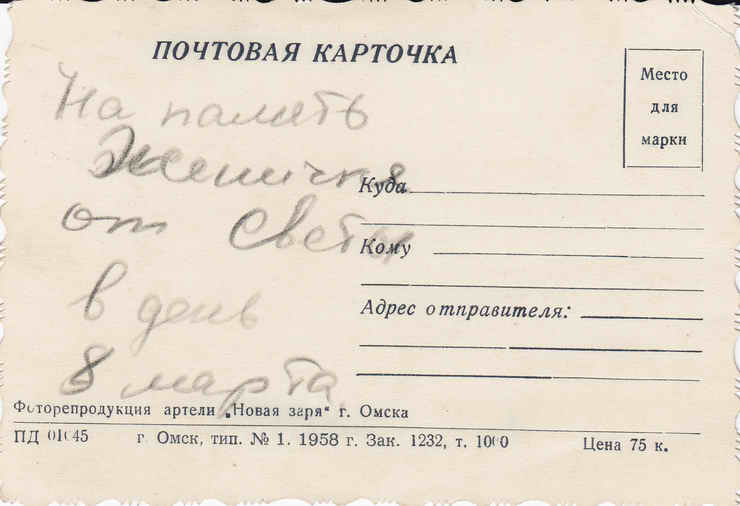 ПОЧТОВАЯ КАРТОЧКА
Место
для
марки
На память
Женичке
от Светы
в день
8 марта
Куда
Кому
Адрес отправителя:
Фоторепродукция артели „Новая заря“ г. Омска
ПД 01045 г. Омск, тип. № 1. 1958 г. Зак. 1232, т. 1000 Цена 75 к.